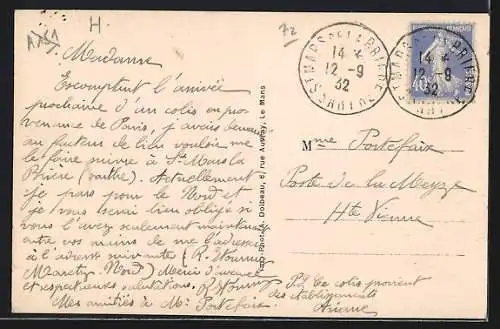 H.
72
Madame
Escomptant l'arrivée
prochaine d'un colis en pro-
venance de Paris, j'avais
au facteur de bien vouloir me
le faire suivre à St Mars la
Brière (Sarthe). Actuellement
je pars pour le Nord et
je vous serai bien obligé si
vous l'avez seulement maintenant
entre vos mains de me l'adresser
à l'adresse suivante (R.
Nord) Merci d'avance
et respectueuses salutations. R
Mes amitiés à Mr Portefaix.
Dolbeau, 8, rue Auvray, Le Mans
ST MARS LA BRIERE
14
12-9
32
SARTHE
ST MARS LA BRIERE
14
12-9
32
40
Mme Portefaix
Poste de la Meyze
Hte Vienne
P.S. Ce colis provient
des établissements